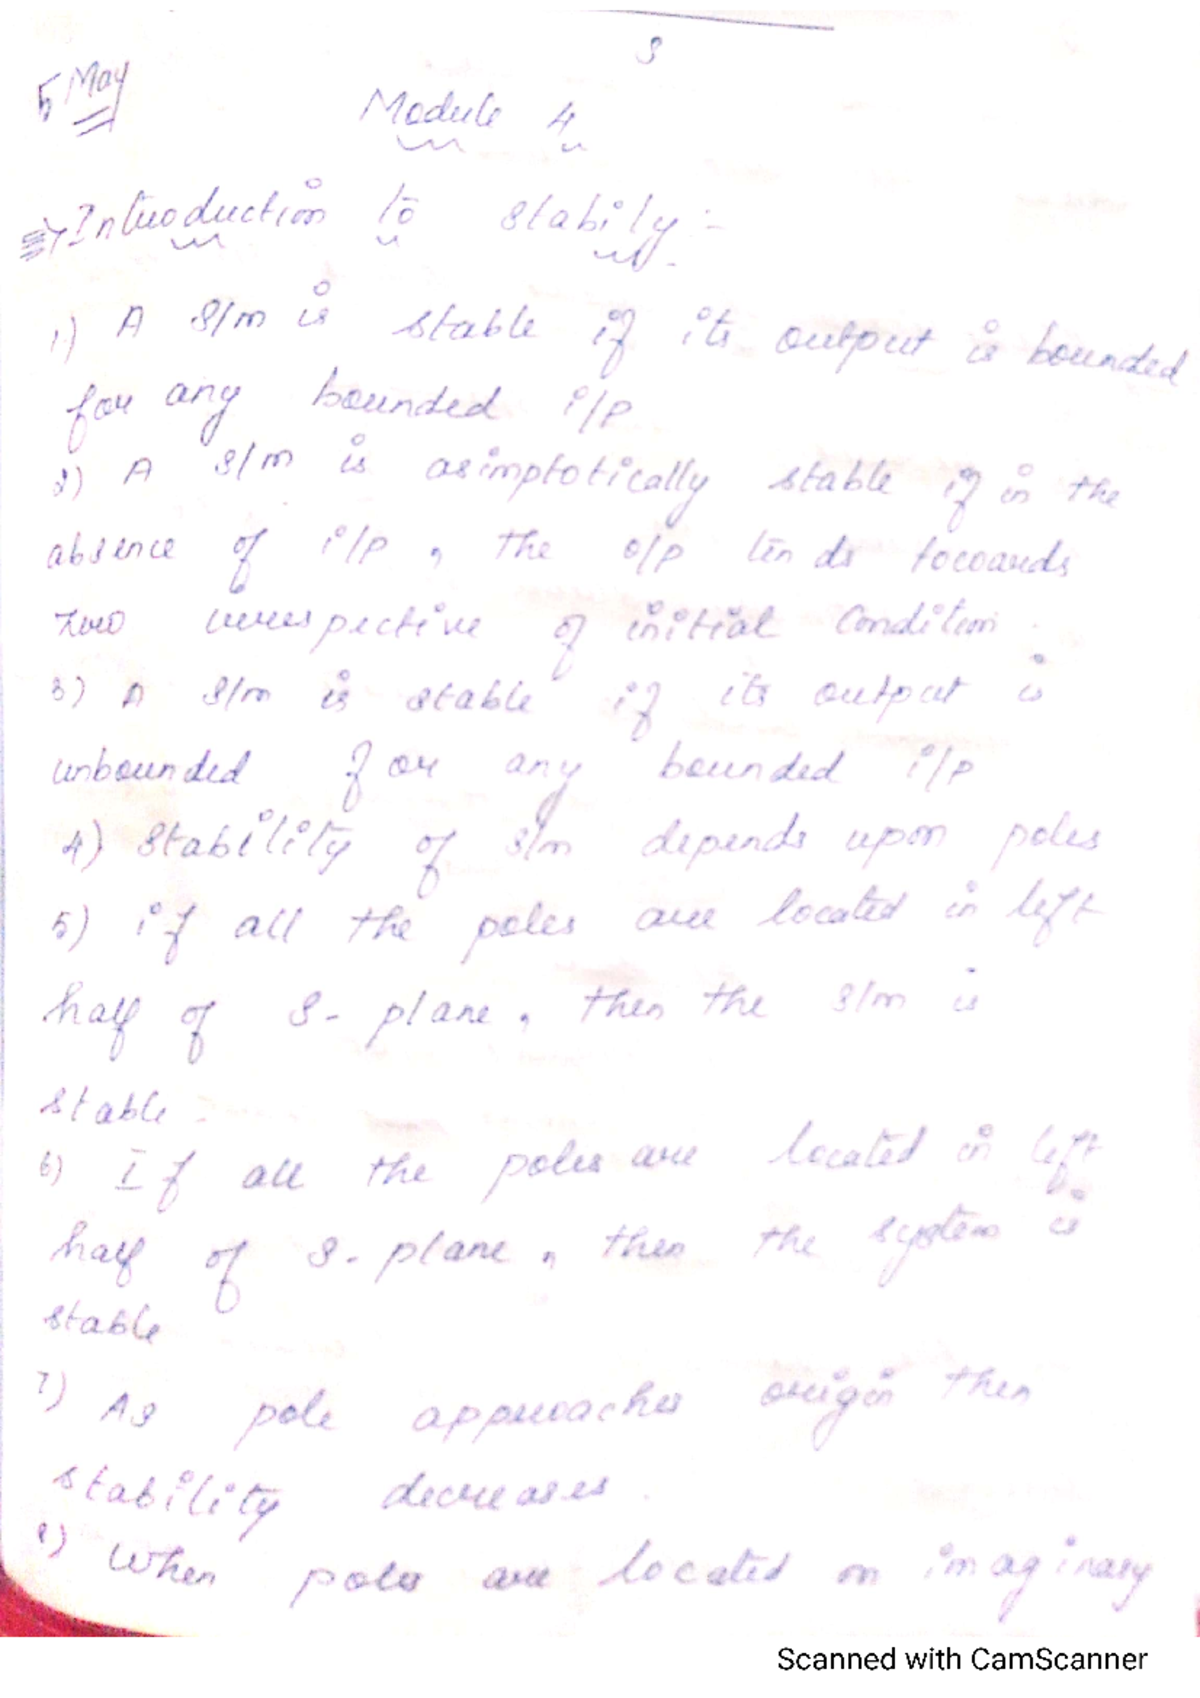 5 May
Module 4
Introduction to stabily :-
1) A s/m is stable if its output is bounded
for any bounded i/p
2) A s/m is asimptotically stable if in the
absence of i/p, the o/p tends towards
zero irrespective of initial Condition.
3) A s/m is stable if its output is
unbounded for any bounded i/p
4) Stability of s/m depends upon poles
5) if all the poles are located in left
half of S-plane, then the s/m is
stable.
6) If all the poles are located in left
half of S-plane, then the system is
stable
7) As pole approaches origin then
stability decreases.
8) When poles are located on imaginary
Scanned with CamScanner